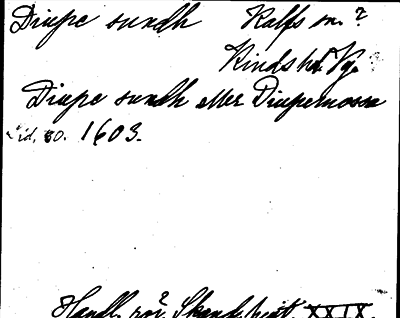 Diupe sundh Kalfs sn. ?
Kinds hd Vg.
Diupe sundh eller Diupemossa
sid. 80. 1603.
Handl. rör. Skand. hist. XXIX.